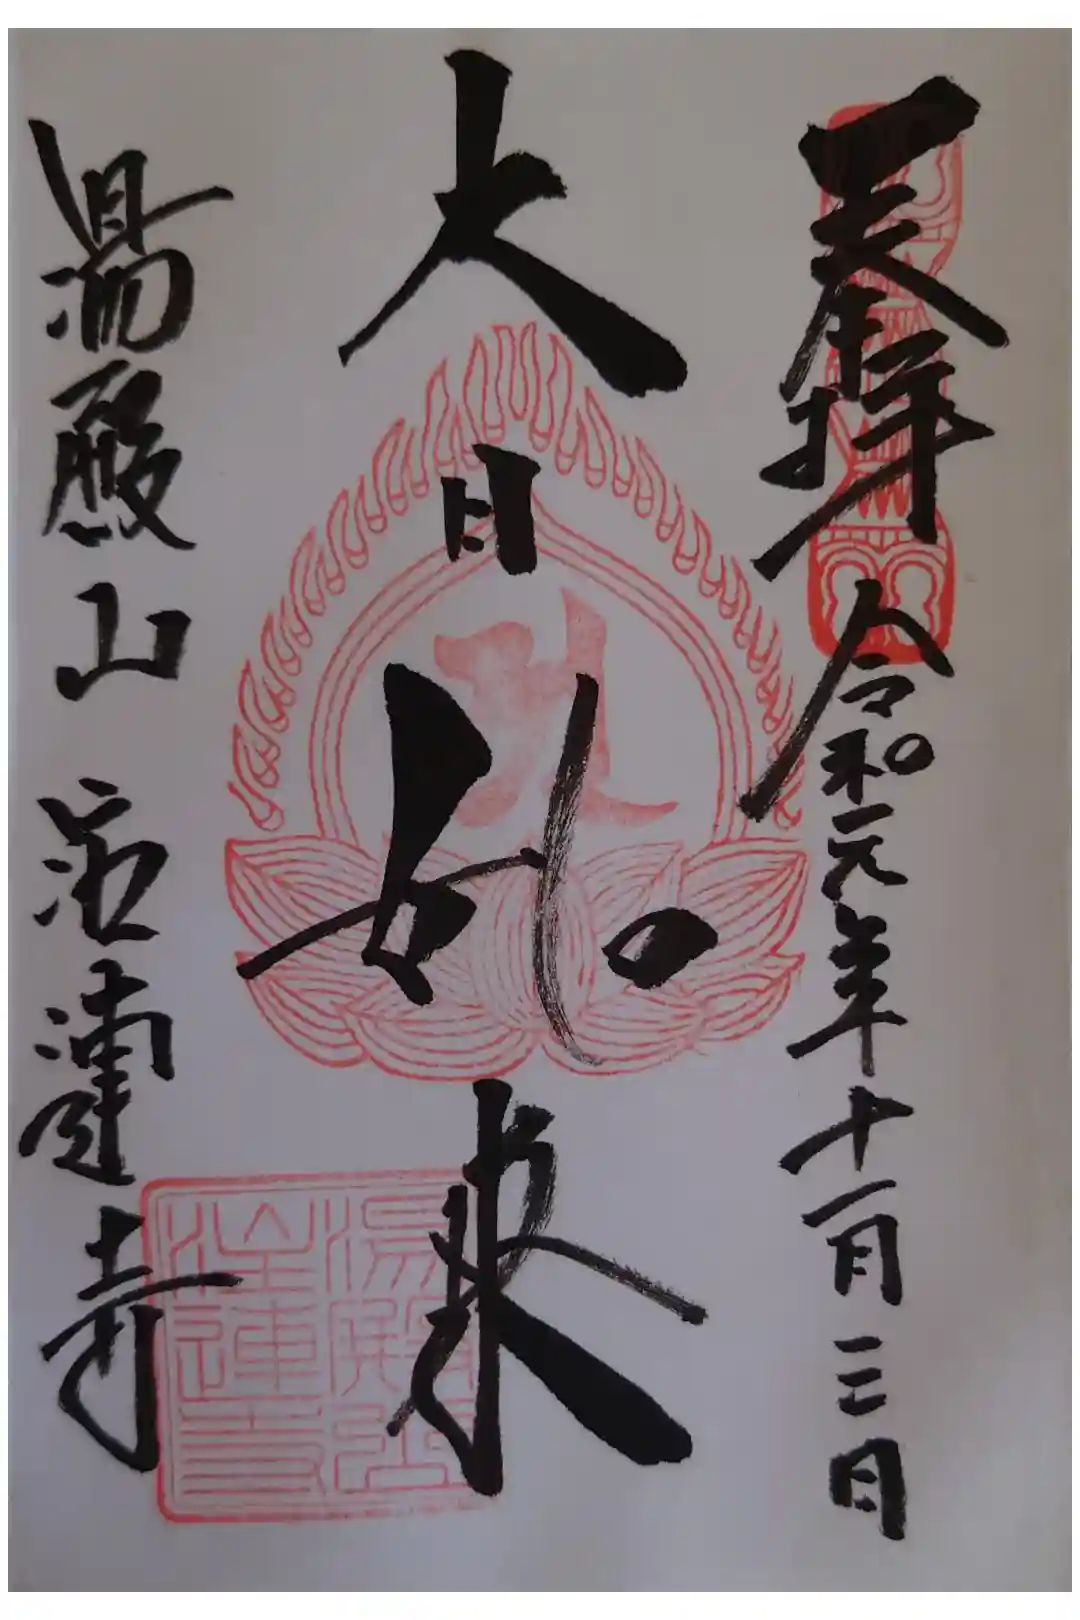 奉拝 令和元年十一月三日
大日如来
湯殿山 注連寺
湯殿山
注連寺